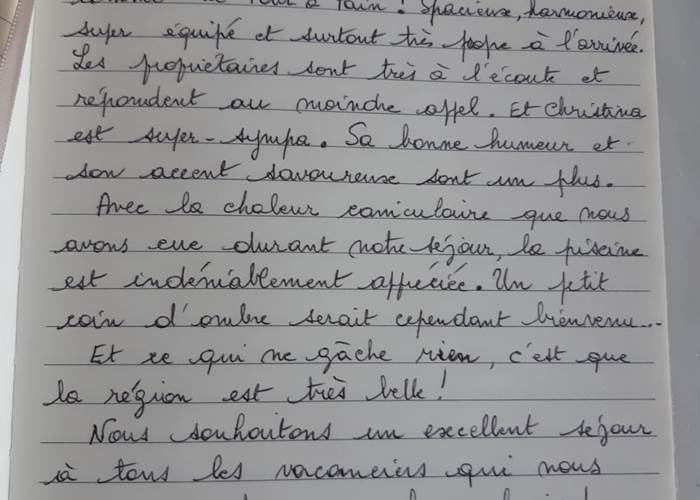 à fain ! Spacieuse, harmonieuse,
super équipé et surtout très propre à l'arrivée.
Les propriétaires sont très à l'écoute et
répondent au moindre appel. Et Christina
est super-sympa. Sa bonne humeur et
son accent savoureuse sont un plus.
Avec la chaleur caniculaire que nous
avons eue durant notre séjour, la piscine
est indéniablement appréciée. Un petit
coin d'ombre serait cependant bienvenu...
Et ce qui ne gâche rien, c'est que
la région est très belle !
Nous souhaitons un excellent séjour
à tous les vacanciers qui nous